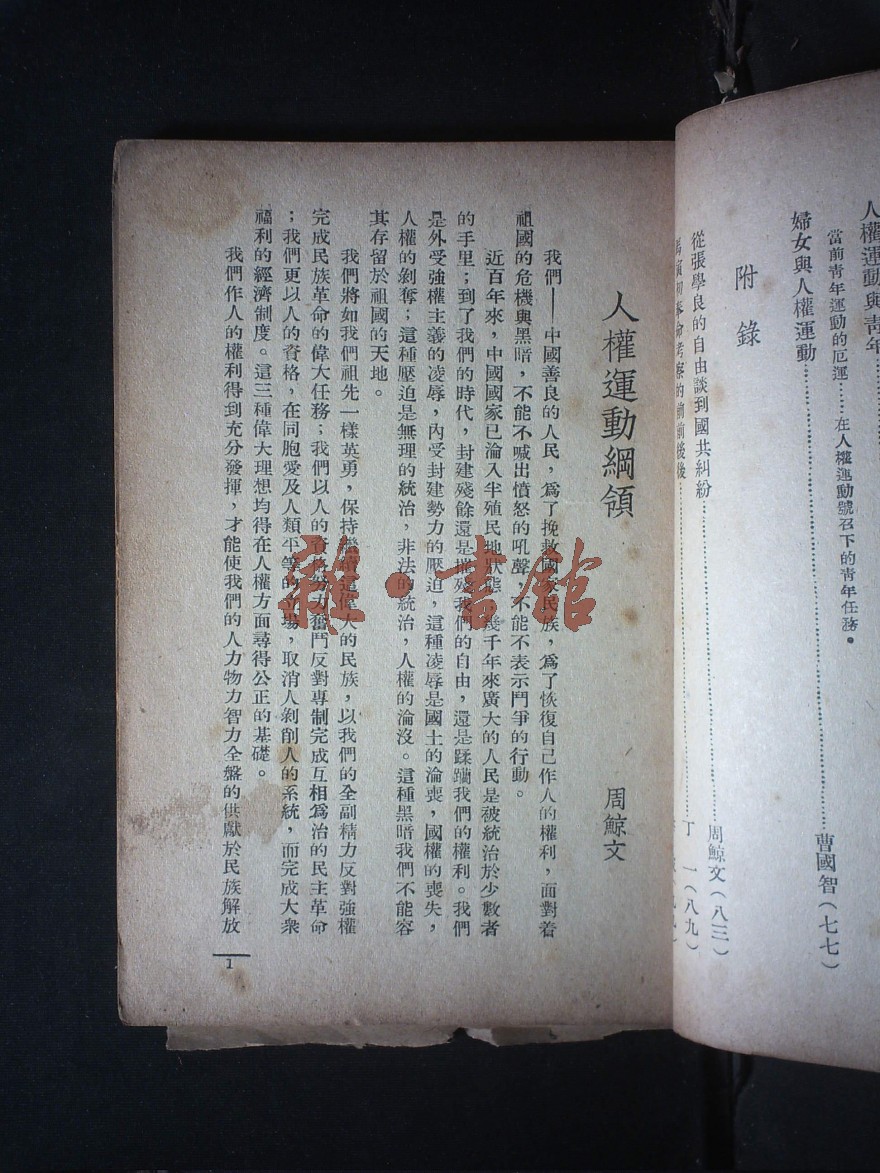 人權運動與青年
當前青年運動的厄運……在人權運動號召下的青年任務。
婦女與人權運動……曹國智(七七)
附錄
從張學良的自由談到國共糾紛……周鯨文(八三)
馬寅初奉命考察的前前後後……丁一(八九)
人權運動綱領
周鯨文
我們——中國善良的人民，爲了挽救國家民族，爲了恢復自己作人的權利，面對着
祖國的危機與黑暗，不能不喊出憤怒的吼聲，不能不表示鬥爭的行動。
近百年來，中國國家已淪入半殖民地狀態，幾千年來廣大的人民是被統治於少數者
的手里；到了我們的時代，封建殘餘還是摧殘我們的自由，還是蹂躪我們的權利。我們
是外受強權主義的凌辱，內受封建勢力的壓迫，這種凌辱是國土的淪喪，國權的喪失，
人權的剝奪；這種壓迫是無理的統治，非法的統治，人權的淪沒。這種黑暗我們不能容
其存留於祖國的天地。
我們將如我們祖先一樣英勇，保持繼續這偉大的民族，以我們的全副精力反對強權
完成民族革命的偉大任務；我們以人的資格努力奮鬥反對專制完成互相爲治的民主革命
；我們更以人的資格，在同胞愛及人類平等的立場，取消人剝削人的系統，而完成大衆
福利的經濟制度。這三種偉大理想均得在人權方面尋得公正的基礎。
我們作人的權利得到充分發揮，才能使我們的人力物力智力全盤的供獻於民族解放
1
雜·書館